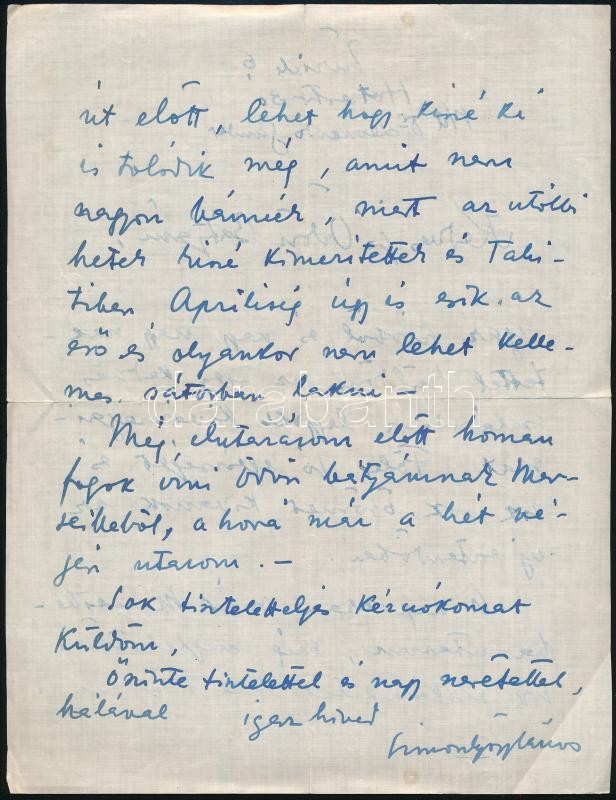 út előtt, lehet hogy kissé ki
is tolódik még, amit nem
nagyon bánnék, mert az utóbbi
hetek kissé kimerítettek és Tahi-
tiben Áprilisig úgy is esik az
eső és olyankor nem lehet kelle-
mes sátorban lakni —
Még elutazásom előtt hosszan
fogok írni Ödön bátyámnak Mar-
seilleből, a hová már a hét vé-
gén utazom. —
Sok tiszteletteljes kézcsókomat
küldöm,
Őszinte tisztelettel és nagy szeretettel,
hálával igaz híved
darabanth